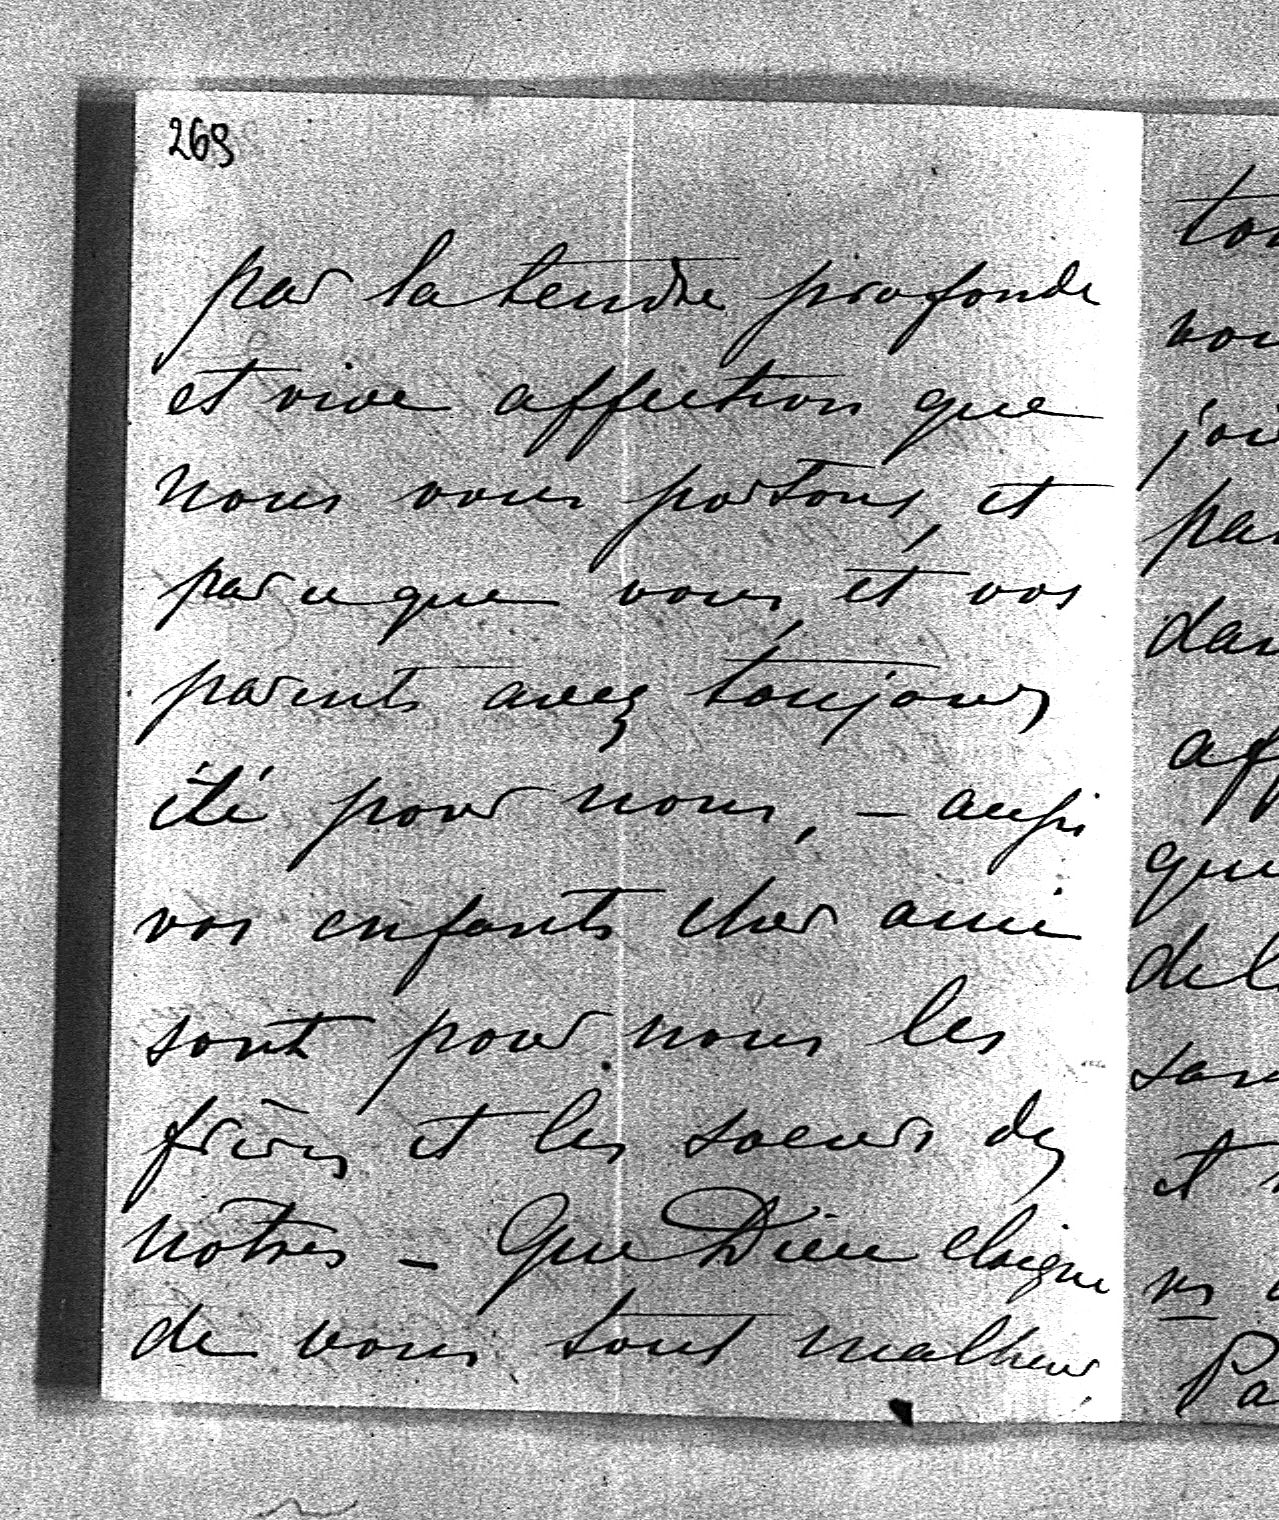 269
par la tendre profonde
et vive affection que
nous vous portons, et
par ce que vous, et vos
parents avez toujours
été pour nous, – aussi
vos enfants cher ami
sont pour nous les
frères et les soeurs des
nôtres – Que Dieu eloigne
de vous tout malheur
par
dan
aff
que
sans
et
Pa